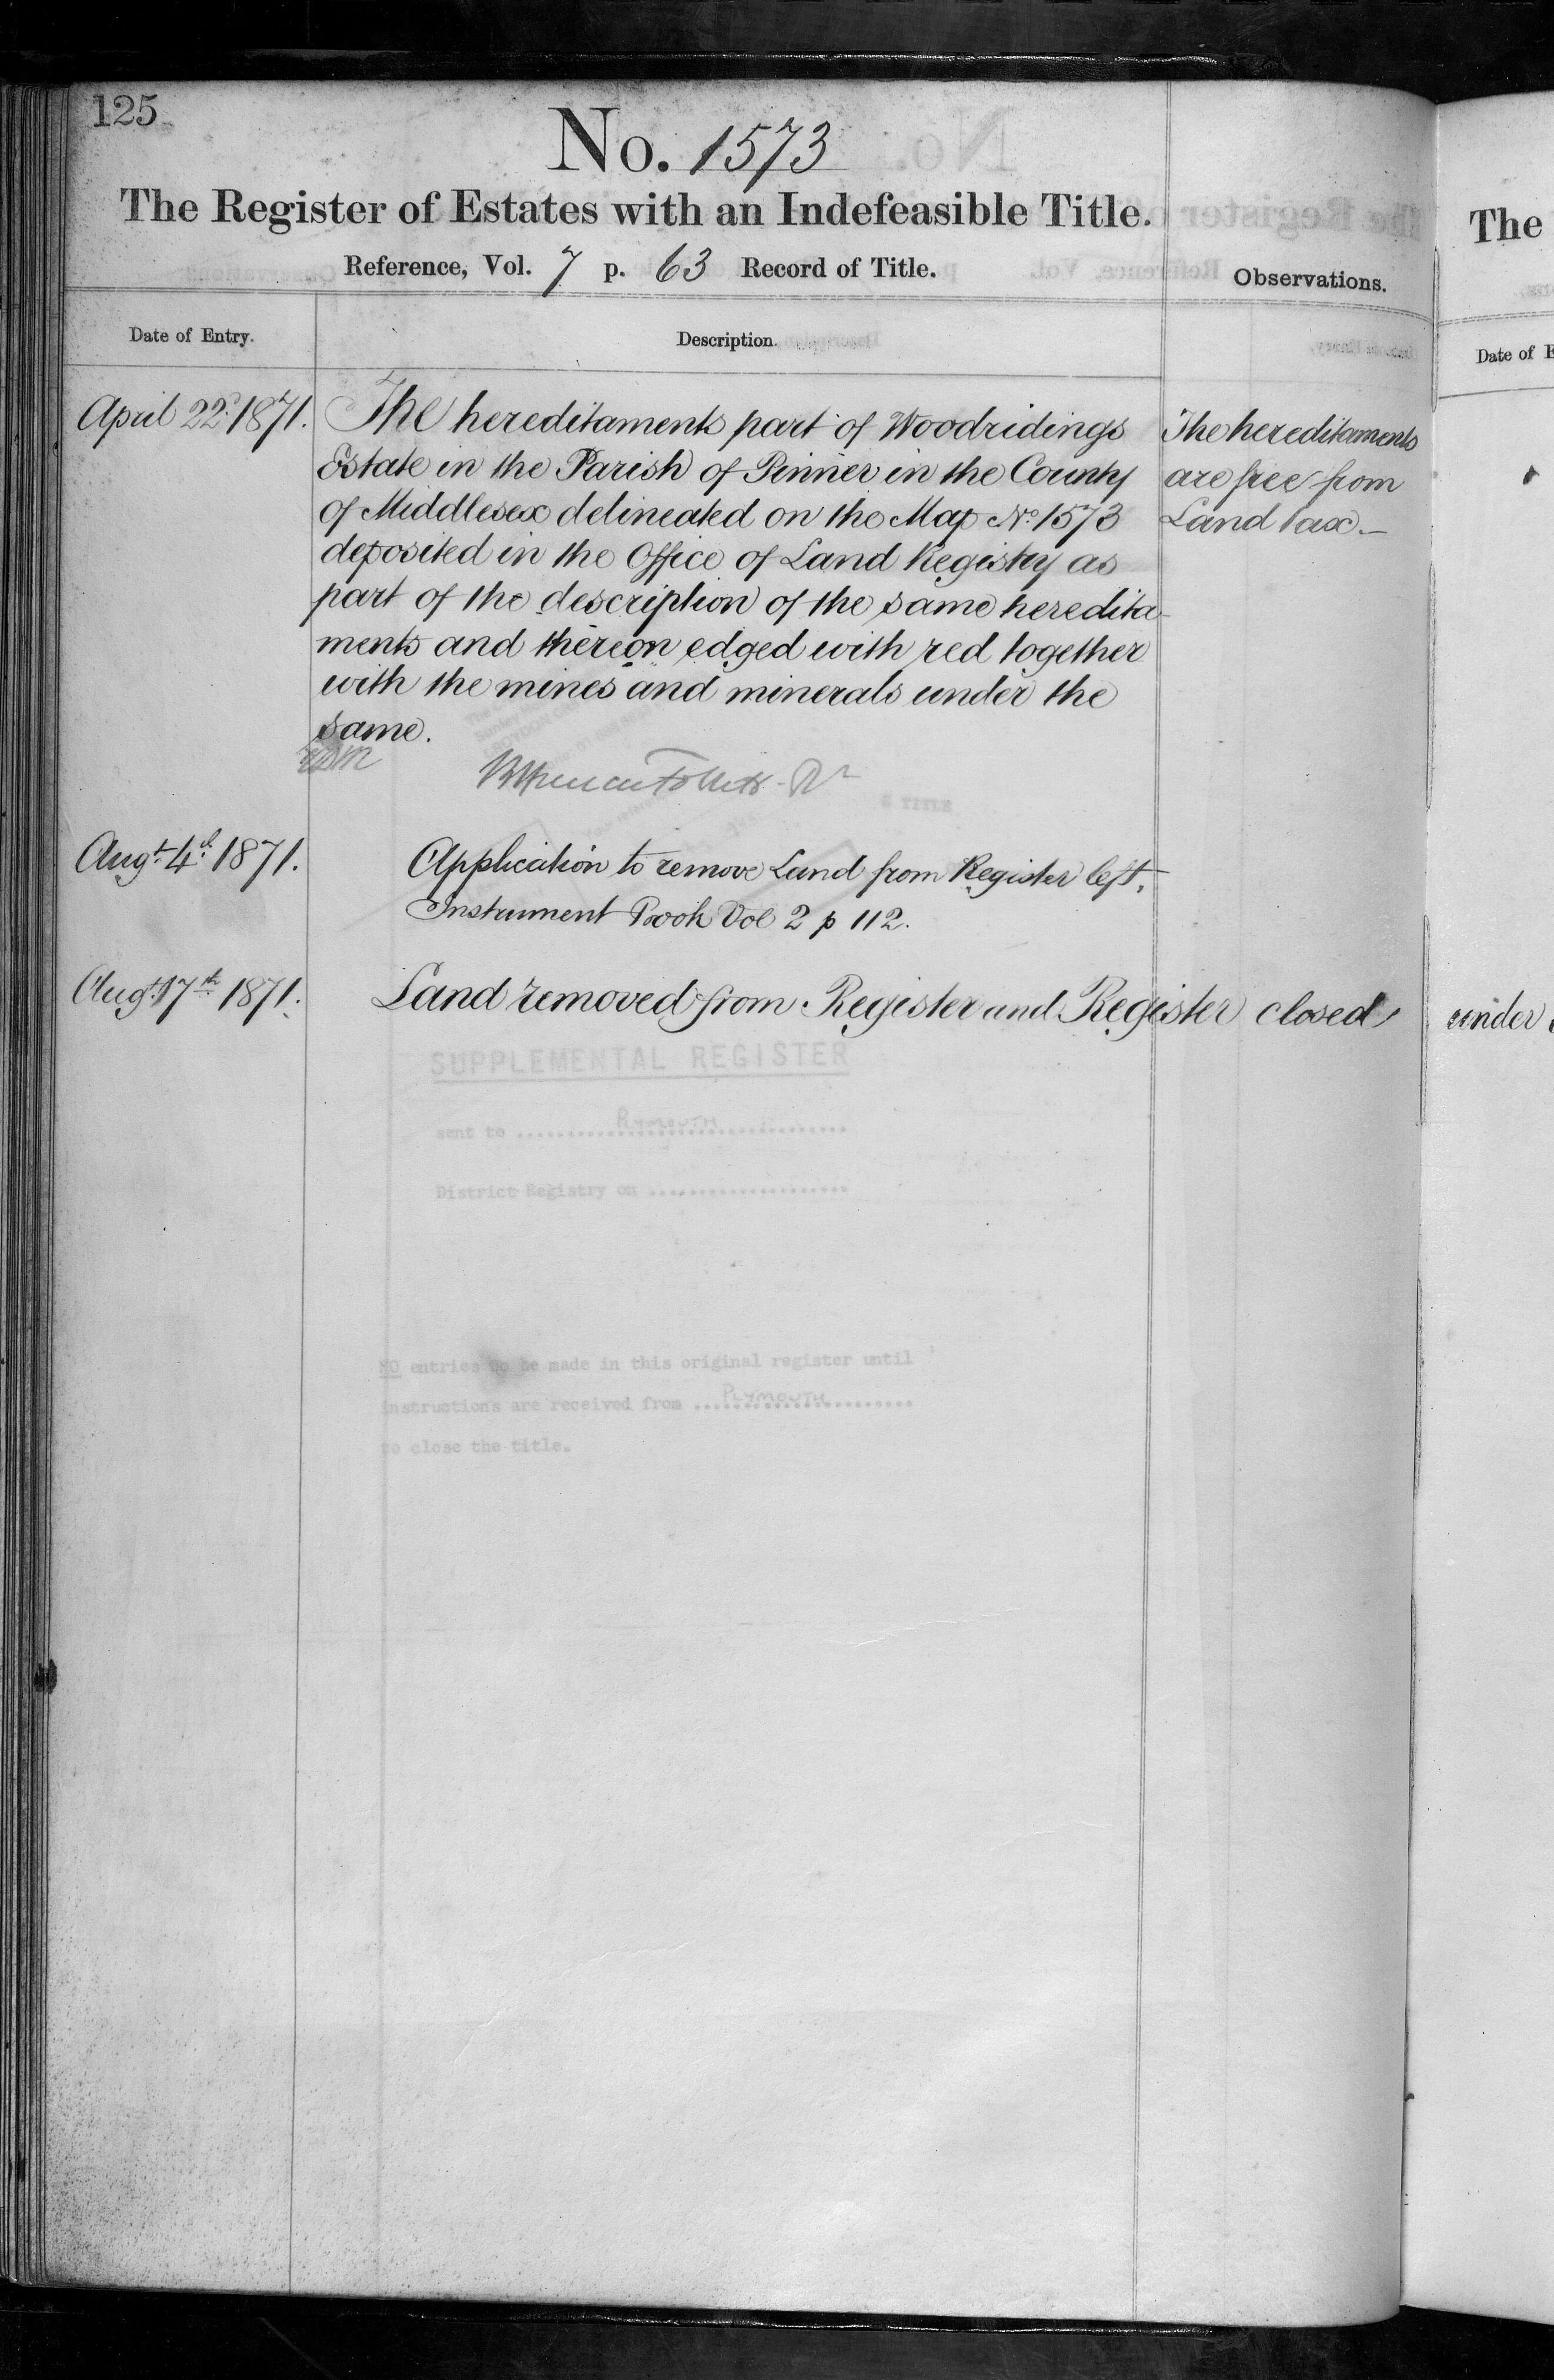 125
No. 1573
The Register of Estates with an Indefeasible Title.
Reference, Vol. 7 p. 63 Record of Title.
Observations.
Date of Entry.
Description.
April 22d. 1871.
The hereditaments part of Woodridings
Estate in the Parish of Pinner in the County
of Middlesex delineated on the Map No. 1573
deposited in the Office of Land Registry as
part of the description of the same heredita-
ments and thereon edged with red together
with the mines and minerals under the
same.
The hereditaments
are free from
Land tax.—
Augt. 4th. 1871.
Application to remove Land from Register left,
Instrument Book Vol 2 p 112.
Augt. 17th. 1871.
Land removed from Register and Register closed, under
SUPPLEMENTAL REGISTER
sent to PLYMOUTH
District Registry on
NO entries to be made in this original register until
instructions are received from PLYMOUTH
to close the title.
The
Date of E